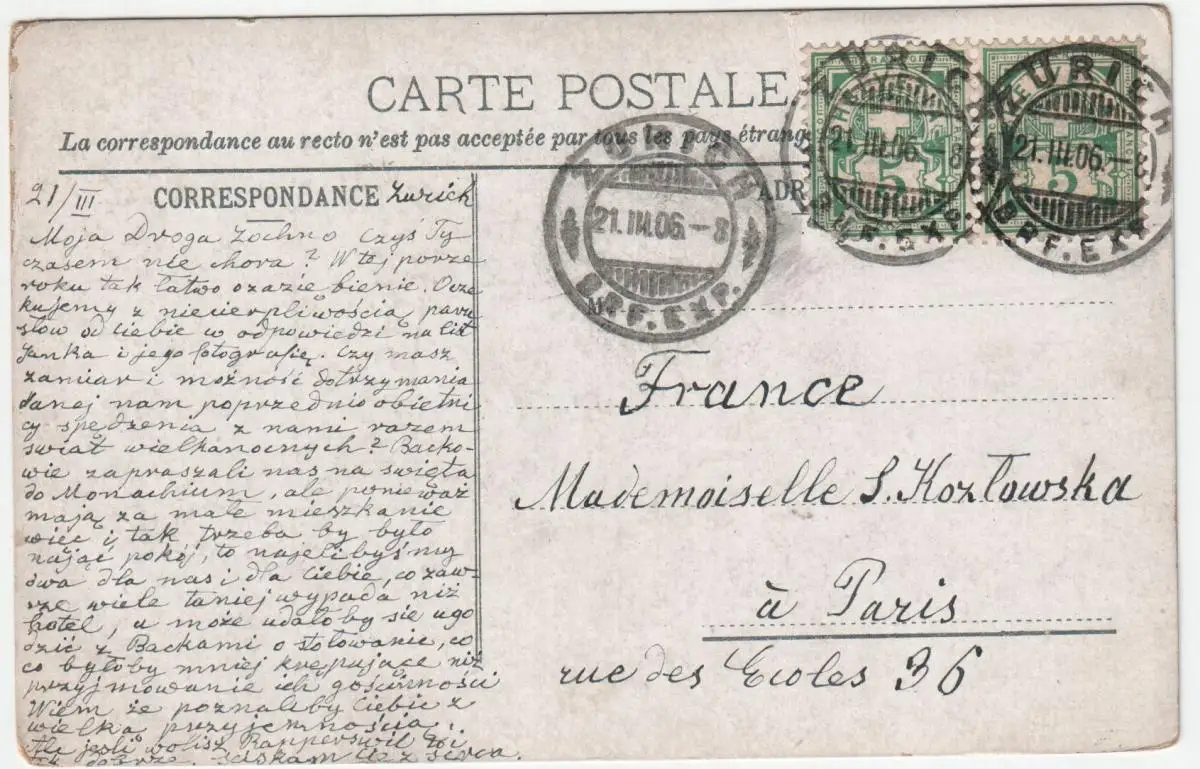 CARTE POSTALE
La correspondance au recto n'est pas acceptée par tous les pays étrang
21/III CORRESPONDANCE Zurich
ADR
ZURICH
21.III.06.-8
BRF.EXP.
ZURICH
21.III.06.-8
BRF.EXP.
ZURICH
21.III.06.-8
BRF.EXP.
HELVETIA
5
5
Moja Droga Zochno czyś Ty
czasem nie chora? W tej porze
roku tak łatwo o zazie bienie. Ocze
kujemy z niecierpliwością paru
słow od Ciebie w odpowiedzi na list
Janka i jego fotografię. Czy masz
zamiar i możność dotrzymania
danej nam poprzednio obietni
cy spędzenia z nami razem
świat wielkanocnych? Backo-
wie zapraszali nas na swięta
do Monachium, ale ponieważ
mają za małe mieszkanie
więc i tak trzeba by było
nająć pokój, to najęlibyśmy
dwa dla nas i dla Ciebie, co zaw-
rze wiele taniej wypada niż
hotel, a może udałoby się ugo
dzić z Backami o stołowanie, co
co byłoby mniej krępujące niż
przyjmowanie ich gościnności
Wiem że poznaliby Ciebie z
wielką przyjemnością.
Ale jeśli wolisz Rapperswil to i
tak dobrze. Sciskam Cię z serca.
M
France
Mademoiselle S. Kozłowska
à Paris
rue des Ecoles 36